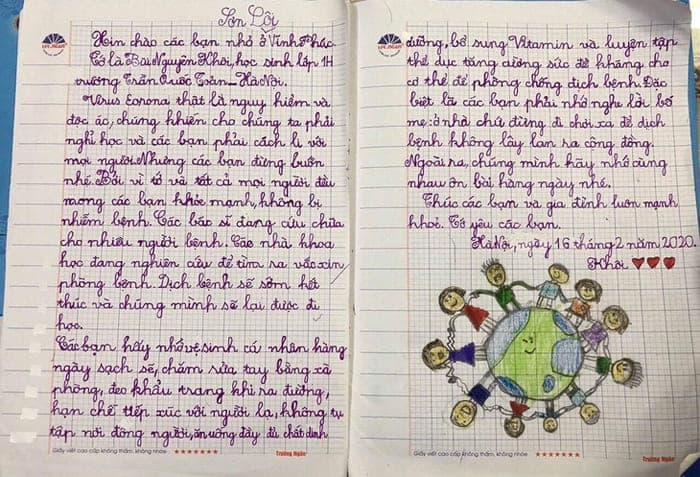 Sơn Lôi
Xin chào các bạn nhỏ ở Vĩnh Phúc.
Tớ là Bùi Nguyên Khôi, học sinh lớp 1H
trường Trần Quốc Toản_Hà Nội.
Virus Corona thật là nguy hiểm và
độc ác, chúng khiến cho chúng ta phải
nghỉ học và các bạn phải cách li với
mọi người. Nhưng các bạn đừng buồn
nhé. Bởi vì tớ và tất cả mọi người đều
mong các bạn khỏe mạnh, không bị
nhiễm bệnh. Các bác sĩ đang cứu chữa
cho nhiều người bệnh. Các nhà khoa
học đang nghiên cứu để tìm ra vắc xin
phòng bệnh. Dịch bệnh sẽ sớm hết
thúc và chúng mình sẽ lại được đi
học.
Các bạn hãy nhớ vệ sinh cá nhân hàng
ngày sạch sẽ, chăm rửa tay bằng xà
phòng, đeo khẩu trang khi ra đường,
hạn chế tiếp xúc với người lạ, không tụ
tập nơi đông người, ăn uống đầy đủ chất dinh
Giấy viết cao cấp không thấm, không nhòe
Trường Ngân
dưỡng, bổ sung Vitamin và luyện tập
thể dục tăng cường sức đề kháng cho
cơ thể để phòng chống dịch bệnh. Đặc
biệt là các bạn phải nhớ nghe lời bố
mẹ: ở nhà chứ đừng đi chơi xa để dịch
bệnh không lây lan ra cộng đồng.
Ngoài ra, chúng mình hãy nhớ cùng
nhau ôn bài hàng ngày nhé.
Chúc các bạn và gia đình luôn mạnh
khoẻ. Tớ yêu các bạn.
Hà Nội, ngày 16 tháng 2 năm 2020.
Khôi
Giấy viết cao cấp không thấm, không nhòe
Trường Ngân